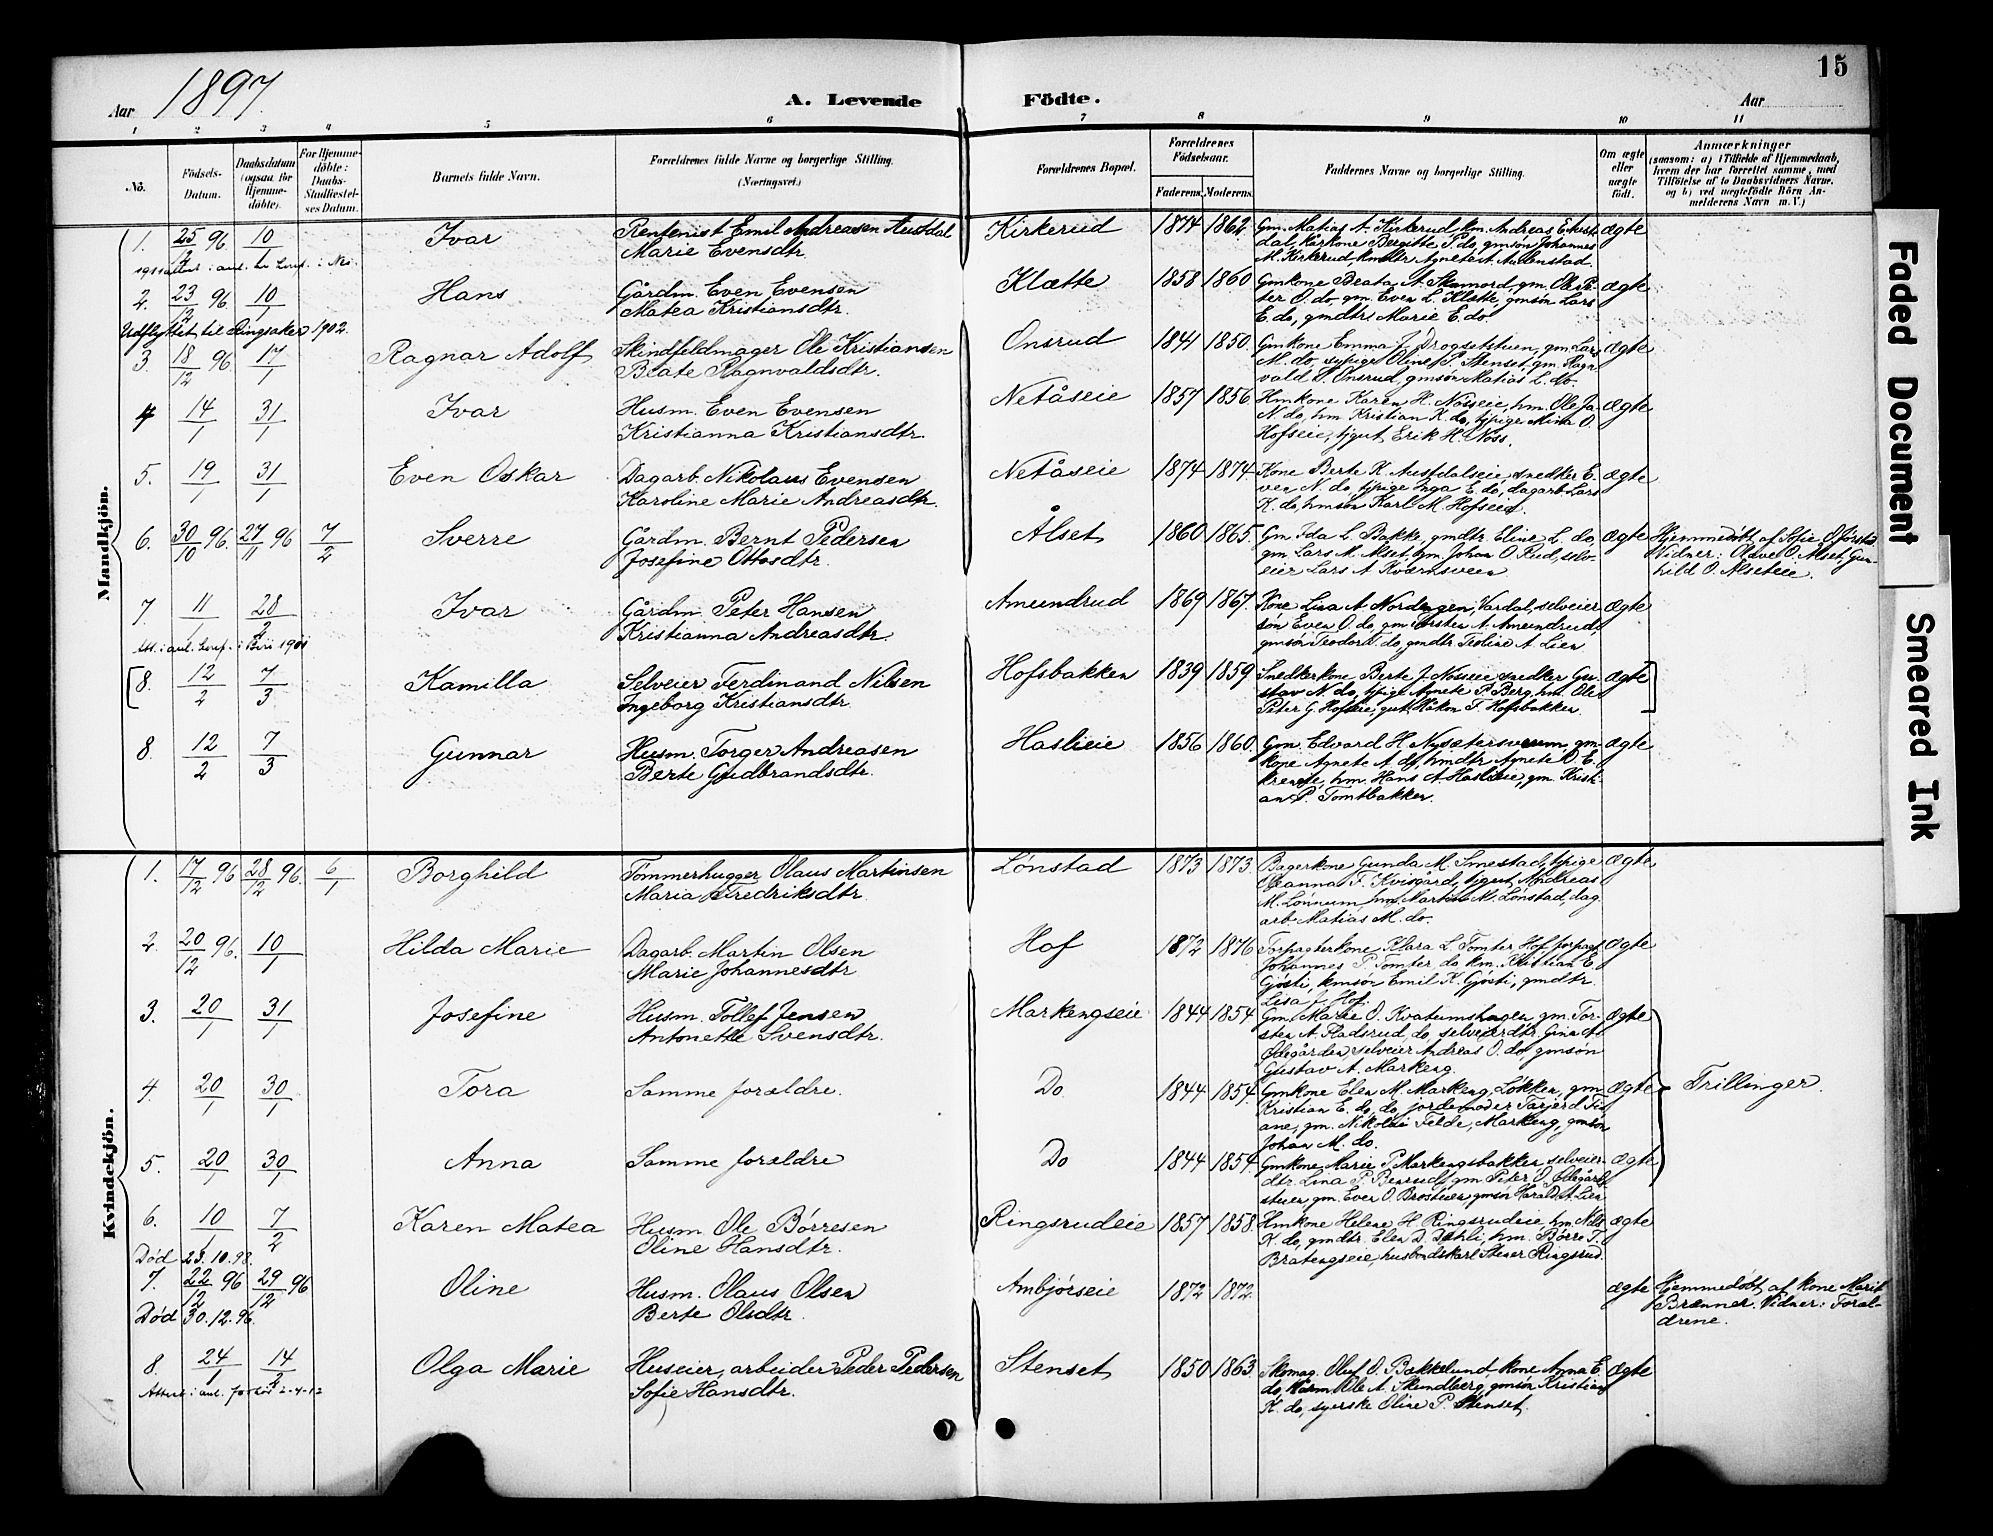 Aar 1897.
A. Levende Födte.
Aar
15
1 2 3 4 5 6 7 8 9 10 11
No.
Födsels-Datum.
Daabsdatum (ogsaa for Hjemme-döbte).
For Hjemme-döbte: Daabs-Stadfæstel-ses Datum.
Barnets fulde Navn.
Forældrenes fulde Navne og borgerlige Stilling.
(Næringsvei.)
Forældrenes Bopæl.
Forældrenes Födselsaar.
Faderens. Moderens.
Faddernes Navne og borgerlige Stilling.
Om ægte eller uægte födt.
Anmærkninger
(saasom: a) i Tilfælde af Hjemmedaab, hvem der har forrettet samme, med Tilföielse af to Daabsvidners Navne, og b) ved uegtefödte Börn An-melderens Navn m. V.)
Mandkjön.
1. 25/12 96 10/1 Ivar
Rentenist Emil Andreasen Austdal
Marie Evensdtr.
Kirkerud 1874 1862
Gm. Matias A. Kirkerud, km. Andreas Aust-
dal, Kirkone Bergitte P. do, gmsön Johannes
M. Kirkerud, Agnete A.
ægte
2. 23/12 96 10/1 Hans
Gårdm. Even Evensen
Matea Kristiansdtr.
Klætte 1858 1860
Gmkone Beata A. Skumord, gm. Ole Pe-
ter O. do, gm. Even L. Klætte, gmsön Lars
E. do, gmdtr. Marie E. do.
ægte
Udflyttet til Ringsaker 1902.
3. 18/12 96 17/1 Ragnar Adolf
Skindfeldmager Ole Kristiansen
Beate Ragnvaldsdtr.
Onsrud 1841 1850.
Gmkone Emma J. Drogsetstuen, gm. Lars
M. do, sypige Oline P. Stenset, gm. Ragn
vald O. Onsrud, gmsön Matias L. do.
ægte
4 14/1 31/1 Ivar
Husm. Even Evensen
Kristianna Kristiansdtr.
Netåseie 1857 1856
Hmkone Karen H. Nosseie, hm. Ole Ja-
N. do, hm. Kristian K. do, tjpige Mina O.
Hofseie, tjgut Erik H. Noss.
ægte
5. 19/1 31/1 Even Oskar
Dagarb. Nikolaus Evensen
Karoline Marie Andreasdtr.
Netåseie 1874 1874.
Kone Berte K. Austdalseie, snedker E-
ven N. do, tjpige Inga E. do, dagarb. Lars
K. do, hmsön Karl M. Hofseie.
ægte
6. 30/10 96. 27/11 96 7/2 Sverre
Gårdm. Bernt Pedersen
Josefine Ottosdtr.
Ålset 1860 1865.
Gm. Ida L. Bakke, gmdtr. Eline L. do,
gm. Lars M. Alset, gm. Johan O. Rud, selv-
eier Lars A. Kværnsveen
ægte
Hjemmedøbt af Sofie O. Jørstad
Vidner: Olave O. Ålset, Gun-
hild O. Alseteie.
7. 11/1 28/2 Ivar
Gårdm. Peter Hansen
Kristianna Andreasdtr.
Amundrud 1869 1867.
Kone Lina A. Nordengen, Vardal, selveier
sön Even O. do, gm. Torsten A. Amundrud,
gmsön Teodor T. do, gmdtr. Teoline A. Lien
ægte
8. 12/2 7/3 Kamilla
Selveier Ferdinand Nilsen
Ingeborg Kristiansdtr.
Hofsbakken 1839 1859
Snedkerkone Berte J. Nosseie, snedker Gu-
stav N. do, tjpige Agnete P. Berg, hm. Ole
Peter G. Hofseie, gut Håkon F. Hofsbakken.
ægte
8 12/2 7/3 Gunnar
Husm. Torger Andreasen
Berte Gudbrandsdtr.
Haslieie 1856 1860.
Gm. Edvard H. Nysætersveen, gm-
kone Agnete A. do, hmdtr. Agnete O. E-
hm. Hans A. Haslieie, gm. Kristi-
an P. Tomtbakken.
ægte
Kvindekjön.
1. 17/12 96 28/12 96. 6/1 Borghild
Tømmerhugger Olaus Martinsen
Maria Fredriksdtr.
Lönstad 1873 1873.
Bagerkone Gunda M. Smestad, tjpige
Oleanna F. Kvisgård, tjgut Andreas
M. Lönnum, hm. Martin M. Lönstad, dag
arb. Matias M. do.
ægte
2. 20/12 96. 10/1 Hilda Marie
Dagarb. Martin Olsen
Marie Johannesdtr.
Hof 1872 1876
Forpagterkone Klara L. Tomter, Hof, forpagt.
Johannes P. Tomter, do, km. Kristian E.
Gjösti, kmsön Emil K. Gjösti, gmdtr.
Lisa J. Hof.
ægte
3. 20/1 31/1 Josefine
Husm. Tollef Jensen
Antonette Svensdtr.
Markengseie 1844 1854
Gm. Marie O. Kvatumshagen, gm. Tor-
sten A. Fladsrud, do, selveierdtr. Gina A.
Ødegården, selveier Andreas O. do, gmsön
Gustav A. Markeng.
ægte
4 20/1 30/1 Tora
Samme forældre.
Do 1844 1854.
Gmkone Elen M. Markeng, Løkken, gm.
Kristian E. do, do, jordemoder Tarjerd Ti-
ane, gm. Nikolai Felde, Markeng, gmsön
Johan M. do.
ægte
Trillinger.
5. 20/1 30/1 Anna
Samme forældre
Do 1844 1854.
Gmkone Marie P. Markengsbakken, selveier-
dtr. Lina P. Benrud, gm. Peter O. Ødegård-
stuen, gm. Even O. Brosteien, gmsön Harald A. Lien
ægte
6. 10/1 7/2 Karen Matea
Husm. Ole Børresen
Oline Hansdtr.
Ringsrudeie 1857 1858.
Hmkone Helene H. Ringsrudeie, hm. Nils
K. do, gmdtr. Elen D. Dehli, hm. Børre T.
Bratengseie, husbondskarl Stener Ringsrud.
ægte
Död 23.10.98.
7. 22/12 96 29/12 96 Oline
Husm. Olaus Olsen
Berte Olsdtr.
Ambjörseie 1872 1872.
ægte
Hjemmedöbt af kone Marit
Brænner. Vidner: Foræl-
drene.
Död 30.12.96.
8. 24/1 14/2 Olga Marie
Huseier, arbeider Peder Pedersen
Sofie Hansdtr.
Stenset 1850 1863.
Skomag. Oluf O. Bakkelund, kone Anna E.
do, Ole A. Skundberg, gmsön Kristian
K. do, syerske Oline P. Stenset.
ægte
Faded Document
Smeared Ink